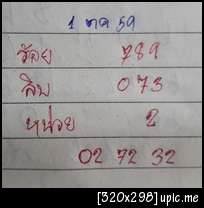 1 ตค 59
ร้อย 789
สิบ 073
หน่วย 2
02 72 32
[320x298] upic.me